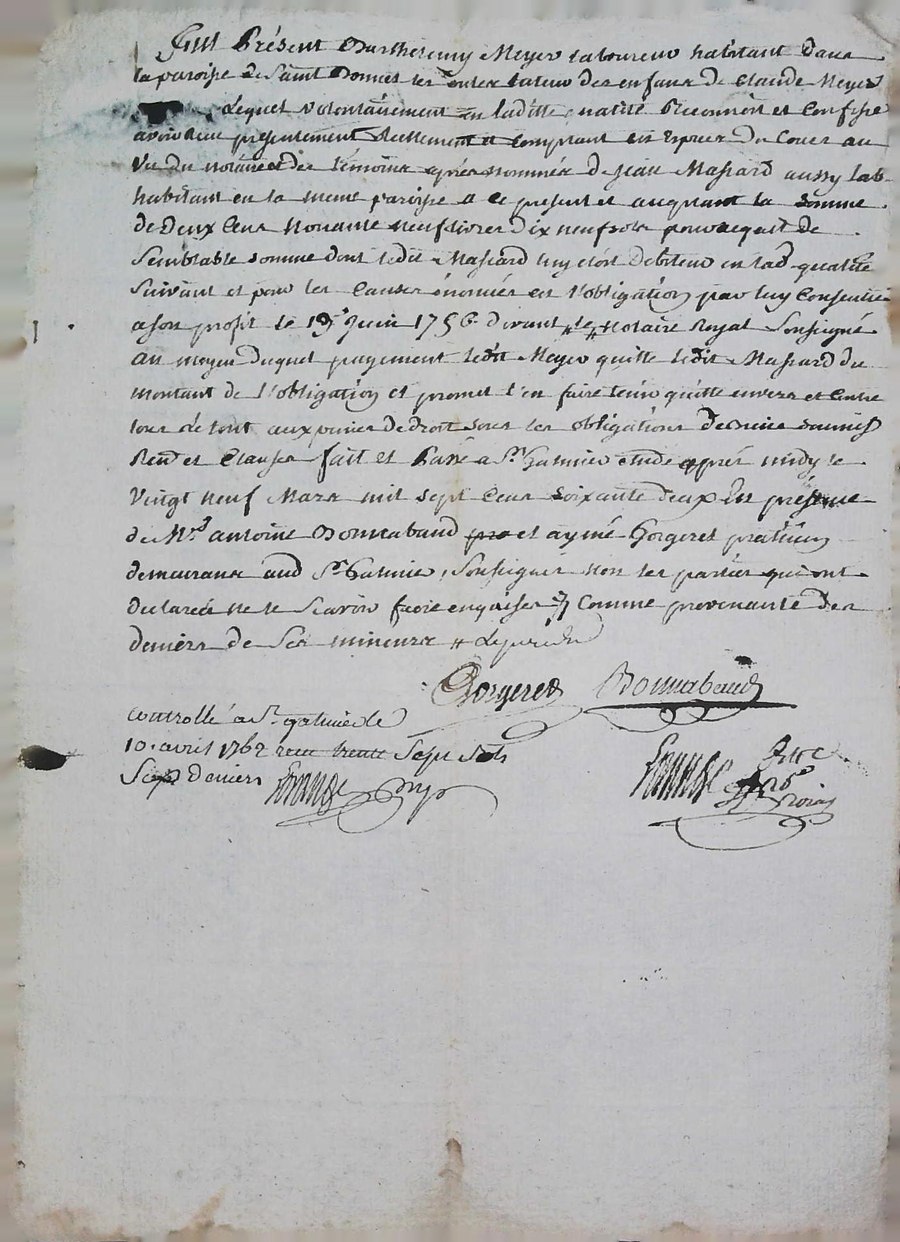 Fut Présent Barthelemy Meyer laboureur habitant dans
la paroisse de Saint Bonnet les oules tuteur des enfans de Claude Meyer
Lequel volontairement en laditte qualité Reconnoit et Confesse
avoir Receu présentement Réellement et Comptant en Espece du Cours au
vu du notaire et des témoins après nommés de Jean Massard aussy lab.
habitant en la meme paroisse a ce present et acquitant la Somme
de Deux Cens Nonante neuf livres Dix neuf sols pour acquit de
Semblable somme dont ledit Massard luy étoit Debiteur en lad. qualité
Suivant et pour les Causes énoncées en l'obligation par luy Consentie
a son profit le 19e. Juin 1756 devant le Notaire Royal Soussigné
au moyen duquel payement ledit Meyer quitte ledit Massard du
montant de l'obligation et promet l'en faire tenir quitte envers et Contre
tous de tout aux peines de droit sous les obligations de soumis
Ren. et Clauses fait et Passé a St. Galmier étude après midy le
vingt neuf Mars mil sept Cens soixante deux En présence
de Mrs. antoine Bonnabaud et aymé Gorgeret praticiens
demeurans aud. St. Galmier, Soussignés non les parties qui ont
declarées ne le Scavoir faire enquises Comme provenante des
deniers de Ses mineurs
Gorgeret Bonnabaud
Controllé a St. galmier le
10. avril 1762 trente Sept Sols
Sept deniers